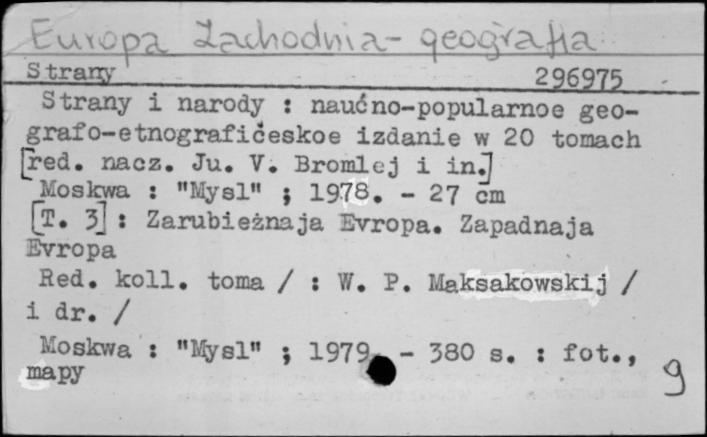 Europa Zachodnia - geografia
Strany 296975
Strany i narody : naućno-popularnoe geo-
grafo-etnografićeskoe izdanie w 20 tomach
[red. nacz. Ju. V. Bromlej i in.]
Moskwa : "Mysl" ; 1978. - 27 cm
[T. 3] : Zarubieżnaja Evropa. Zapadnaja
Evropa
Red. koll. toma / : W. P. Maksakowskij /
i dr. /
Moskwa : "Mysl" ; 1979 - 380 s. : fot.,
mapy
9